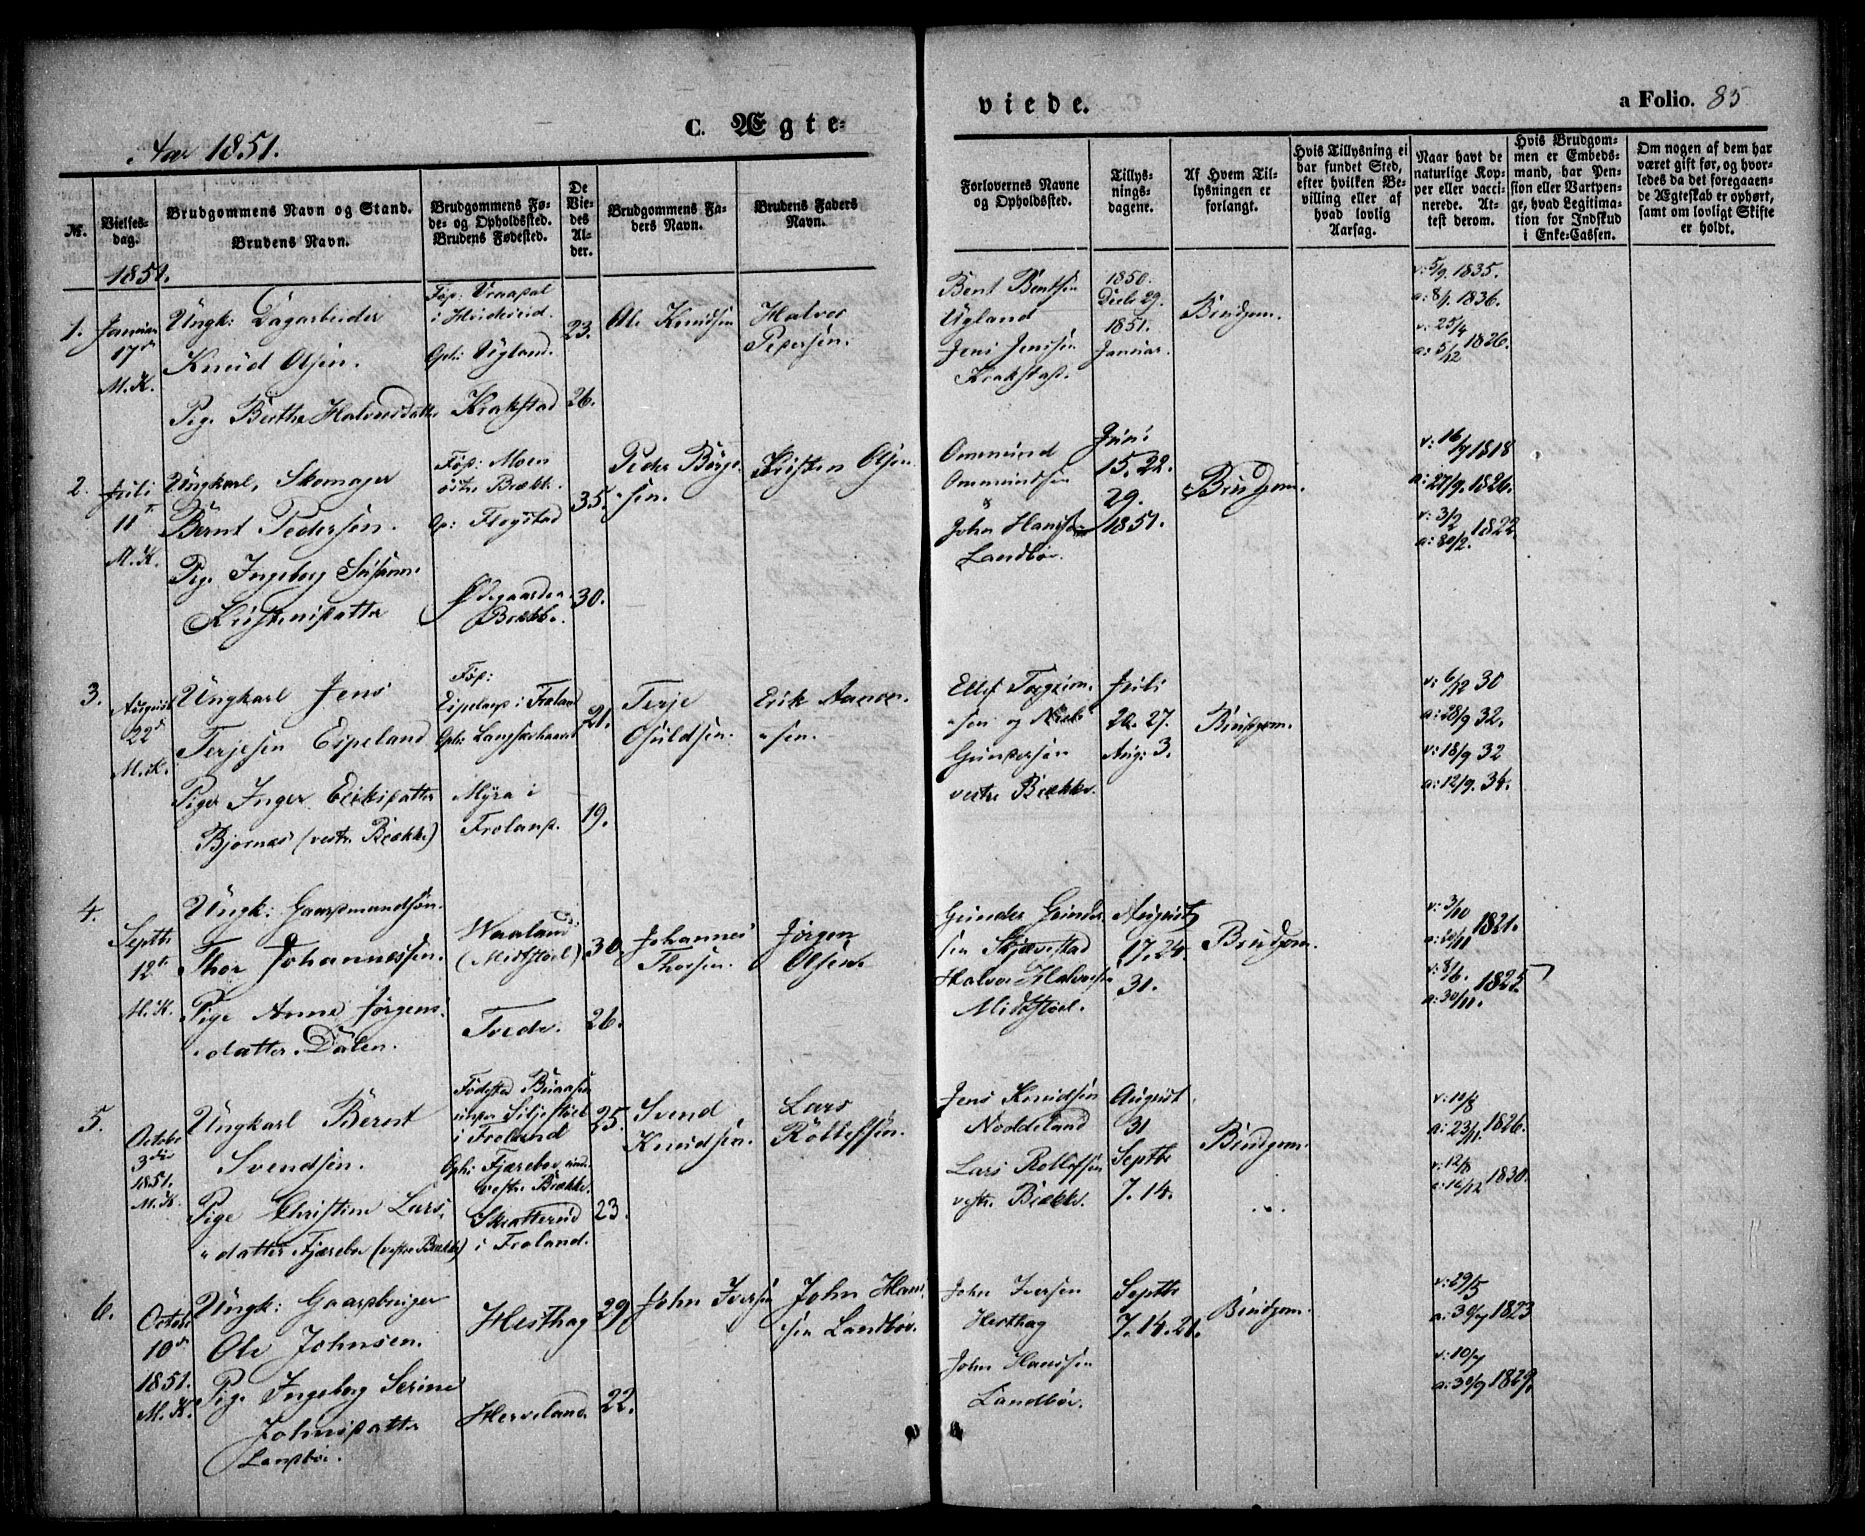 C. Ægte-
viede.
a Folio. 85
Aar 1851.
№.
Vielses-
dag.
Brudgommens Navn og Stand.
Brudens Navn.
Brudgommens Fø-
de- og Opholdssted.
Brudens Fødested.
De
Vie-
des
Al-
der.
Brudgommens Fa-
ders Navn.
Brudens Faders
Navn.
Forlovernes Navne
og Opholdssted.
Tillys-
nings-
dagene.
Af Hvem Til-
lysningen er
forlangt.
Hvis Tillysning ei
har fundet Sted,
efter hvilken Be-
villing eller af
hvad lovlig
Aarsag.
Naar havt de
naturlige Kop-
per eller vacci-
nerede. At-
test derom.
Hvis Brudgom-
men er Embeds-
mand, har Pen-
sion eller Vartpen-
ge, hvad Legitima-
tion for Indskud
i Enke-Cassen.
Om nogen af dem har
været gift før, og hvor-
ledes da det foregaaen-
de Ægteskab er ophørt,
samt om lovligt Skifte
er holdt.
1851.
1.
Januar
17de
M. K.
Ungk: Dagarbeider
Knud Olsen.
Pige Berthe Halvorsdatter
Fød: Vraadal
i Hvideseid.
Oph: Ugland.
Krakstad
23.
26.
Ole Knudsen
Halvor
Pedersen.
Bent Bentsen
Ugland
Jens Jensen
Krakstad.
1850.
Decbr 29.
1851.
Januar.
Brudgom.
v: 5/9 1835.
a: 8/1 1836.
v: 25/4
a: 5/12 1826.
2.
Juli
11te
M. K.
Ungkarl, Skomager
Bernt Pedersen.
Pige Ingeborg Susanne
Kristensdatter
Fød: Moen
østre Brække.
Op: Flogstad
Ødegaarden
Brække.
35.
30.
Peder Børje-
sen.
Kristen Olsen
Ommund
Ommundsen
John Hansen
Landbø.
Juni
15. 22.
29.
1851.
Brudgom.
v: 16/7 1818
a: 27/9. 1826.
v: 3/2
a: 20/2. 1822.
3.
August
22de
M. K.
Ungkarl Jens
Terjesen Eipeland
Pigen Inger Eriksdatter
Bjørnes (vestre Brække)
Fød:
Eipeland i Froland
Oph: Langsehaven
Myra i
Froland.
21.
19.
Terje
Osuldsen.
Erik Aanon-
sen.
Ellef Torgrim-
sen og Niels
Gundersen
vestre Brække.
Juli
20. 27.
Aug: 3.
Brudgom.
v: 6/12 30
a: 28/9 32.
v: 18/9 32
a: 12/9. 34.
4.
Septbr
12te
M. K.
Ungk: Gaardmandssøn
Thor Johannessen.
Pige Anne Jørgens-
datter Dalen.
Waaland
(Midtstøel)
Tvede.
30.
26.
Johannes
Thorsen.
Jørgen
Olsen.
Gunder Gunder-
sen Skjævestad
Halvor Halvorsen
Midtstøel.
August
17. 24.
31.
Brudgom.
v: 3/10
a: 20/11 1821.
v: 8/6.
a: 30/11. 1825
5.
October
3die
1851.
M. K.
Ungkarl Bernt
Svendsen.
Pige Christine Lars-
datter Fjærebo (vestre Brække)
Fødested Buaasen
under Siljestøel
i Froland
Oph: Fjærebo under
vestre Brække.
Skatterud
i Froland.
25.
23.
Svend
Knudsen.
Lars
Rollefsen.
Jens Knudsen
Noddeland
Lars Rollefsen
vestre Brække.
August
31
Septbr
7. 14.
Brudgom.
v: 12/8
a: 23/11. 1826.
v: 12/8
a: 16/12 1830.
6.
October
10de
1851.
M. K.
Ungk: Gaardbruger
Ole Johnsen.
Pige Ingeborg Serine
Johnsdatter
Landbø.
Hesthag
Herveland.
29.
22.
John Iversen
John Han-
sen Landbø.
John Iversen
Hesthag
John Hansen
Landbø.
Septbr
7. 14. 21.
Brudgom.
v: 29/5
a: 30/7 1823
v: 10/7
a: 30/9 1829.